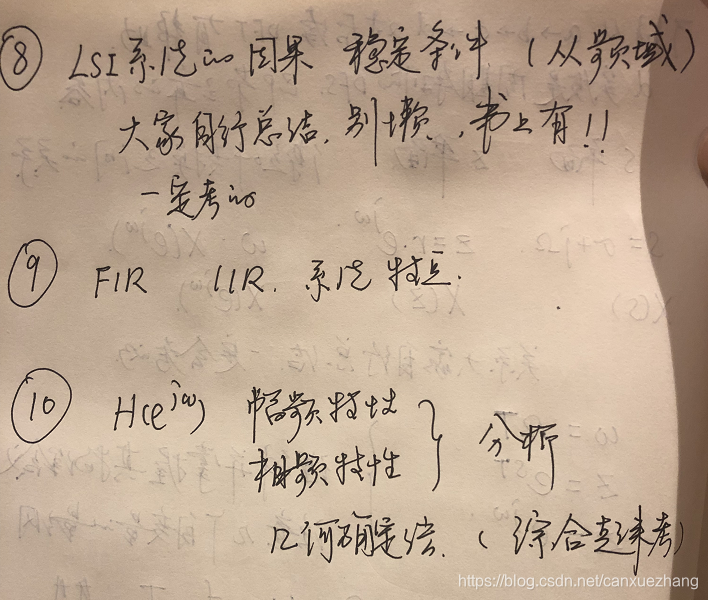 ⑧ LSI系统的因果 稳定条件 (从频域)
大家自行总结,别懒,书上有!!
一定考的
⑨ FIR IIR. 系统特点.
⑩ H(e^jω) 幅频特性
相频特性 } 分析
几何确定法. (综合起来考)
https://blog.csdn.net/canxuezhang